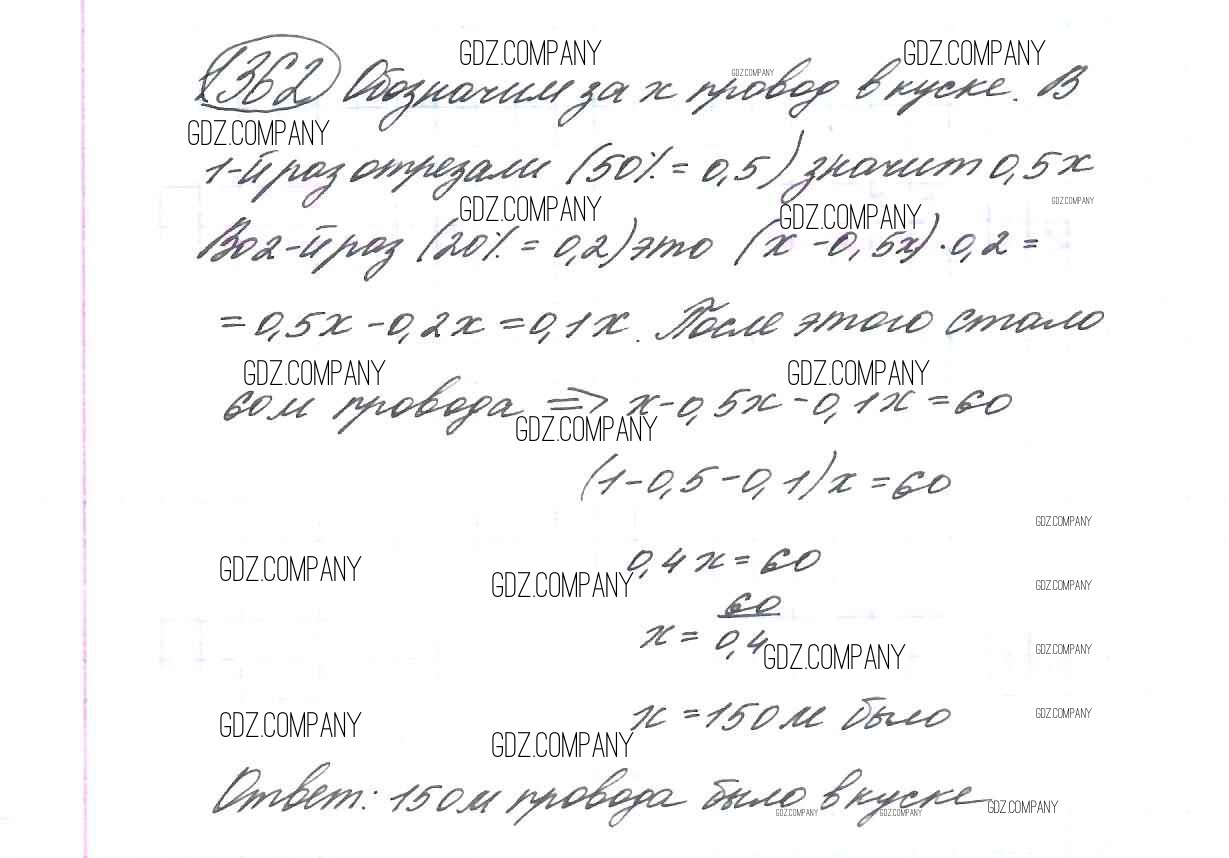 GDZ.COMPANY GDZ.COMPANY
GDZ.COMPANY
1362 Обозначим за х провод в куске. В
GDZ.COMPANY
1-й раз отрезали (50% = 0,5) значит 0,5х
GDZ.COMPANY
GDZ.COMPANY GDZ.COMPANY
Во 2-й раз (20% = 0,2) это (х - 0,5х) · 0,2 =
= 0,5х - 0,2х = 0,1х. После этого стало
GDZ.COMPANY GDZ.COMPANY
60 м провода ⇒ х - 0,5х - 0,1х = 60
GDZ.COMPANY
(1 - 0,5 - 0,1) х = 60
GDZ.COMPANY
0,4 х = 60
GDZ.COMPANY GDZ.COMPANY GDZ.COMPANY
х = 60/0,4
GDZ.COMPANY GDZ.COMPANY
х = 150 м было
GDZ.COMPANY
GDZ.COMPANY GDZ.COMPANY
Ответ: 150 м провода было в куске
GDZ.COMPANY GDZ.COMPANY GDZ.COMPANY